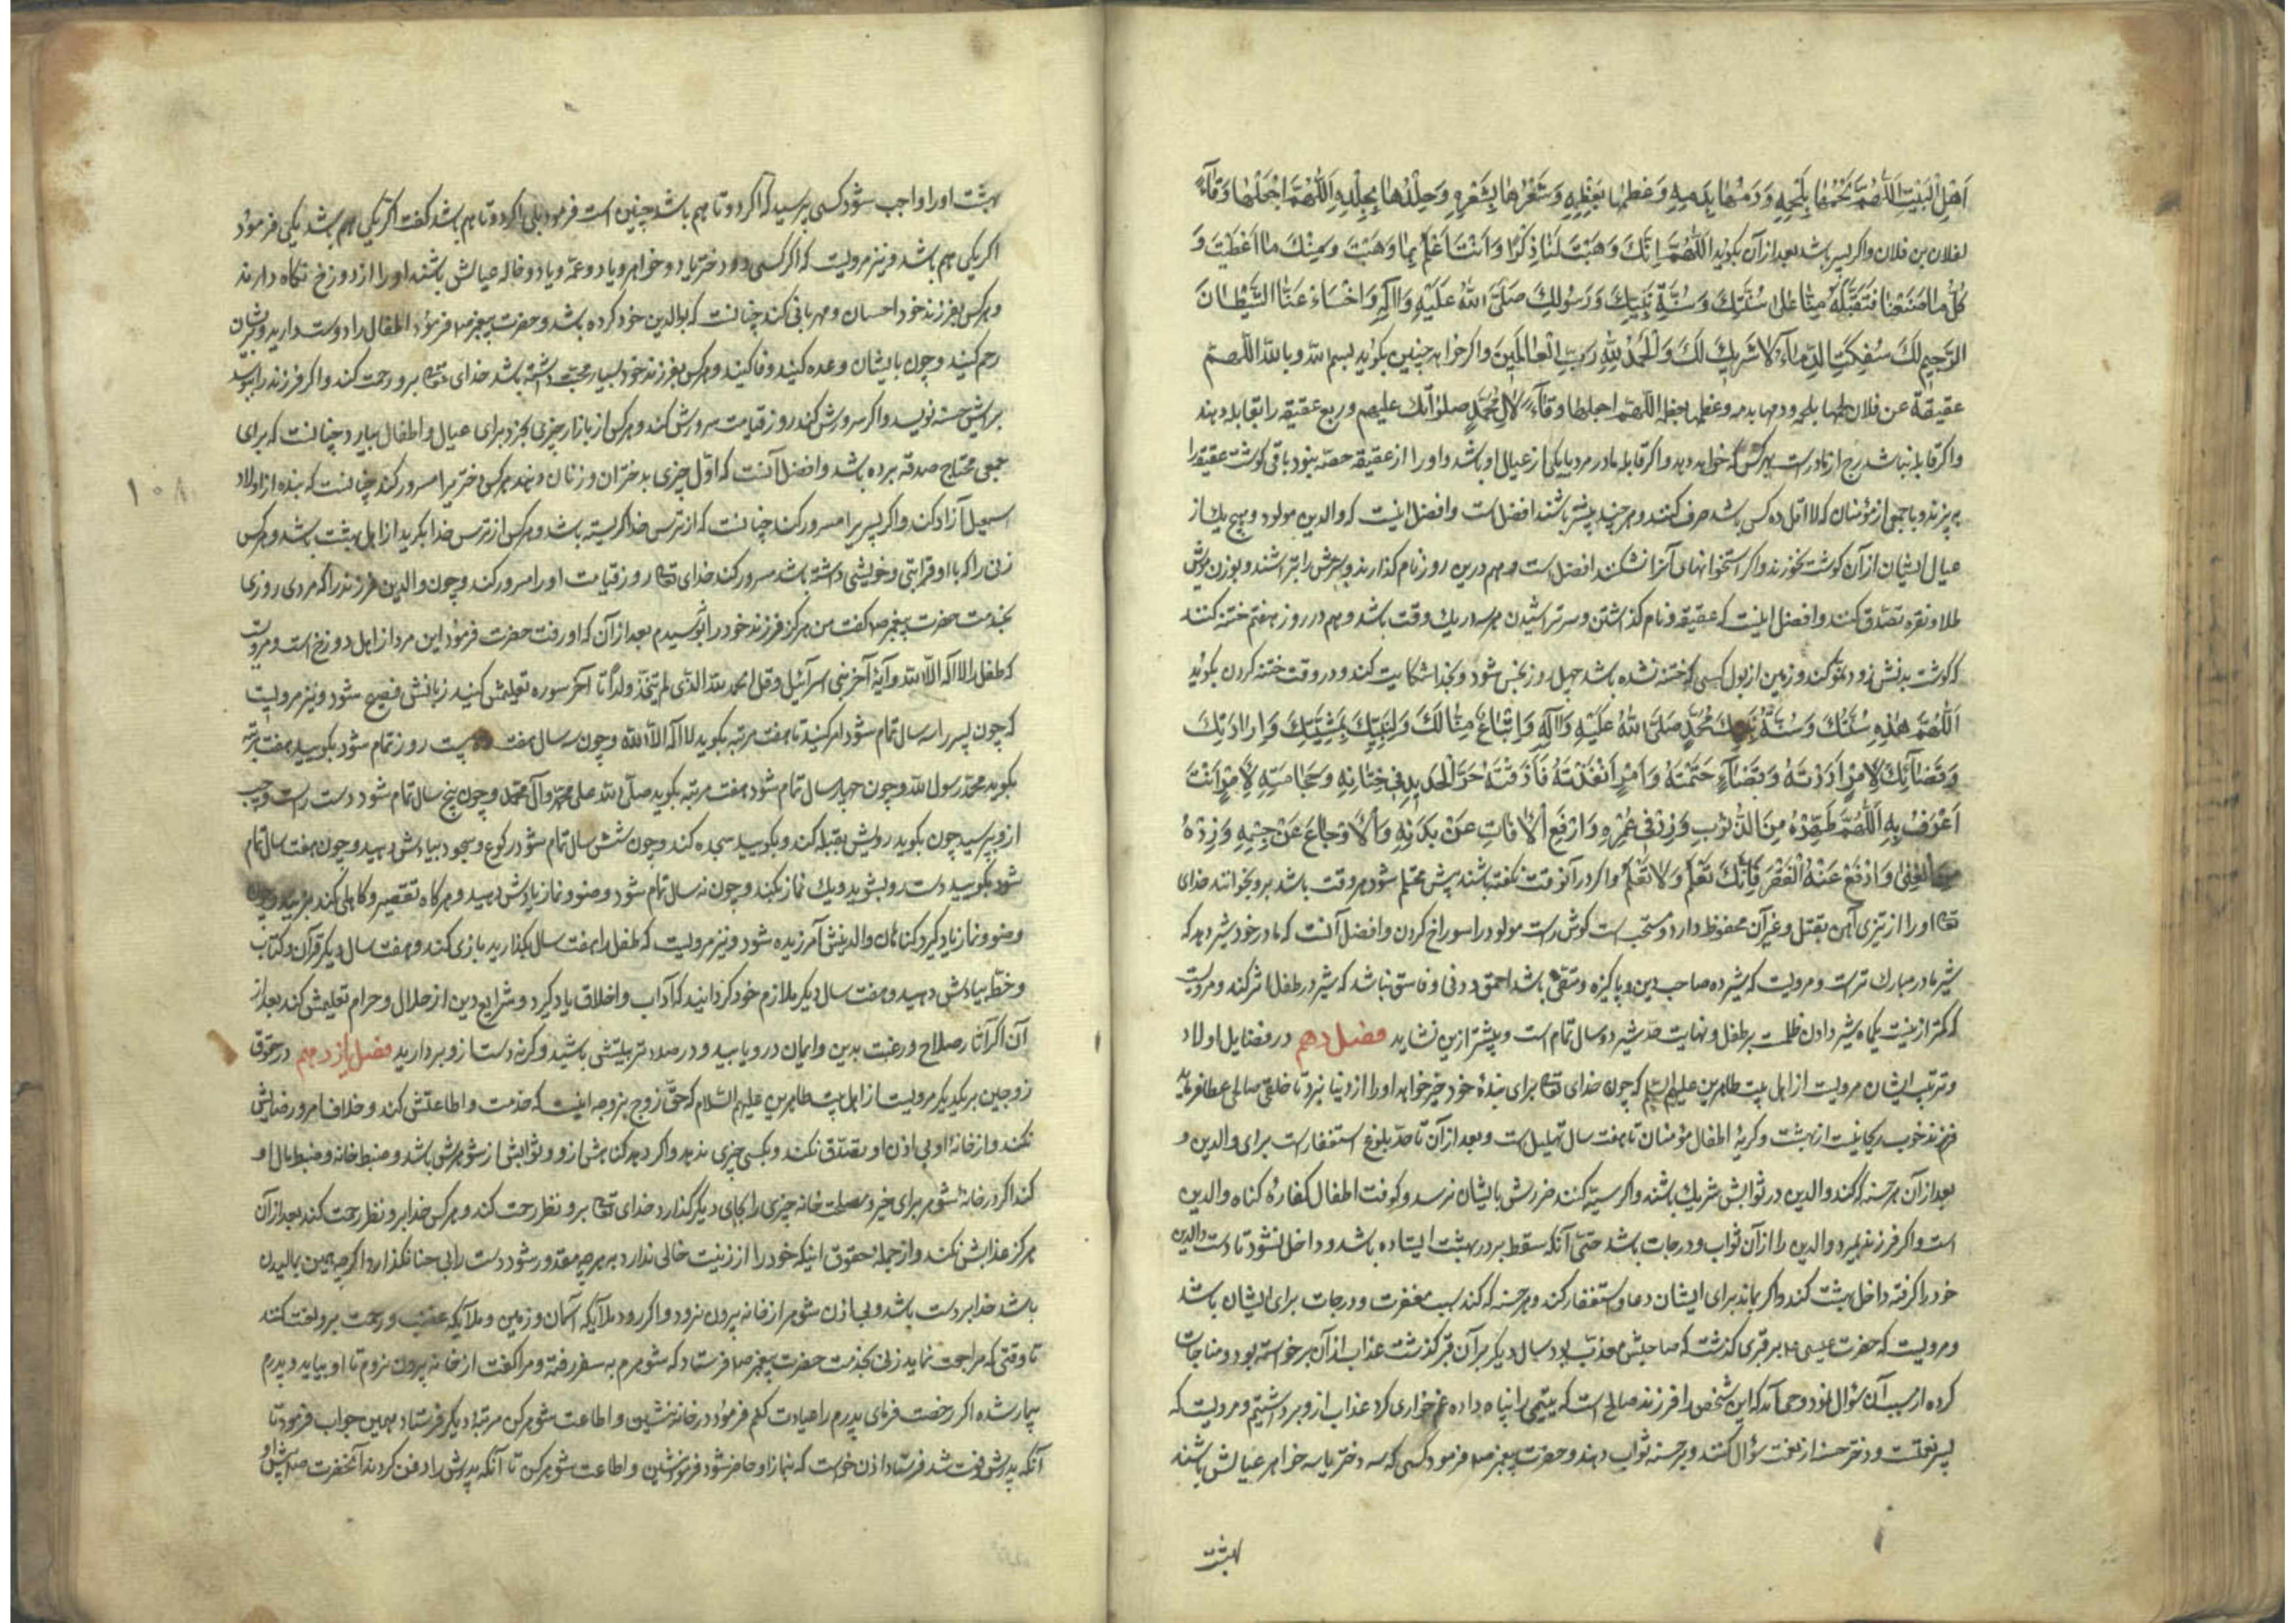 اَهْلِ الْبَيْتِ اَللّٰهُمَّ لَحْمُهَا بِلَحْمِهِ وَدَمُهَا بِدَمِهِ وَعَظْمُهَا بِعَظْمِهِ وَشَعْرُهَا بِشَعْرِهِ وَجِلْدُهَا بِجِلْدِهِ اَللّٰهُمَّ اجْعَلْهَا وَقَآءً
لفلان بن فلان و اکر پسر باشد بعد از آن بکوید اَللّٰهُمَّ اِنَّكَ وَهَبْتَ لَنَا ذَكَرًا وَاَنْتَ اَعْلَمُ بِمَا وَهَبْتَ وَمِنْكَ مَا اَعْطَيْتَ وَ
كُلُّ مَا صَنَعْنَا فَتَقَبَّلْهُ مِنَّا عَلٰى سُنَّتِكَ وَسُنَّةِ نَبِيِّكَ وَرَسُولِكَ صَلَّى اللهُ عَلَيْهِ وَاٰلِهِ وَاخْسَاْ عَنَّا الشَّيْطَانَ
الرَّجِيمَ لَكَ سُفِكَتِ الدِّمَآءُ لَا شَرِيكَ لَكَ وَالْحَمْدُ لِلّٰهِ رَبِّ الْعَالَمِينَ و اکر خواهد چنین بکوید بسم الله و بالله اللّهمّ
عقیقة عن فلان لحمها بلحمه و دمها بدمه و عظمها بعظمه اللّهمّ اجعلها وقآءً لِاٰلِ مُحَمَّدٍ صلواتك علیهم و ربع عقیقه را بقابله دهند
و اکر قابله نباشد ربع از مادرست بهر کس که خواهد دهد و اکر قابله مادر مرد یا یکی از عیال او باشد او را از عقیقه حصّه نبود باقی کوشت عقیقه را
بپزند و با جمعی از مؤمنان که لا اقل ده کس باشد صرف کنند و هر چند بیشتر باشند افضل است و افضل اینست که والدین مولود و هیچ یك از
عیال ایشان از آن کوشت نخورند و اکر استخوانهای آنرا نشکنند افضل است و هم درین روز نام کذارند و سرش را بتراشند و بوزن مویش
طلا و نقره تصدّق کنند و افضل اینست که عقیقه و نام کذاشتن و سر تراشیدن هر سه در یك وقت باشد و هم در روز هفتم ختنه کنند
که کوشت بدنش زود نموّ کند و زمین از بول کسی که ختنه نشده باشد چهل روز نجس شود و بخدا شکایت کند و در وقت ختنه کردن بکوید
اَللّٰهُمَّ هٰذِهِ سُنَّتُكَ وَسُنَّةُ نَبِيِّكَ مُحَمَّدٍ صَلَّى اللهُ عَلَيْهِ وَاٰلِهِ وَاتِّبَاعٌ مِنَّا لَكَ وَلِنَبِيِّكَ بِمَشِيَّتِكَ وَاِرَادَتِكَ
وَقَضَآئِكَ لِاَمْرٍ اَرَدْتَهُ وَقَضَآءٍ حَتَمْتَهُ وَاَمْرٍ اَنْفَذْتَهُ فَاَذَقْتَهُ حَرَّ الْحَدِيدِ فِي خِتَانِهِ وَحَجَامَتِهِ لِاَمْرٍ اَنْتَ
اَعْرَفُ بِهِ اَللّٰهُمَّ طَهِّرْهُ مِنَ الذُّنُوبِ وَزِدْ فِي عُمْرِهِ وَادْفَعِ الْاٰفَاتِ عَنْ بَدَنِهِ وَالْاَوْجَاعَ عَنْ جِسْمِهِ وَزِدْهُ
مِنَ الْغِنٰى وَادْفَعْ عَنْهُ الْفَقْرَ فَاِنَّكَ تَعْلَمُ وَلَا نَعْلَمُ و اکر در آنوقت نکفته باشند پیش محتلم شود هر وقت باشد برو بخوانند خدای
تعه او را از تیزی آهن بقتل و غیر آن محفوظ دارد و مستحب است کوش راست مولود را سوراخ کردن و افضل آنست که مادر خود شیر دهد که
شیر مادر مبارك ترست و مرویست که شیرده صاحب دین و پاکیزه و متقی باشد احمق و دنی و فاسق نباشد که شیر در طفل اثر کند و مرویست
که کمتر از بیست یکماه شیر دادن ظلمست بر طفل و نهایت حدّ شیر دو سال تمام است و بیشتر ازین نشاید فصل دهم در فضایل اولاد
و تربیت ایشان مرویست از اهل بیت طاهرین علیهم السّلم که چون خدای تعه برای بندهٔ خود خیر خواهد او را از دنیا نبرد تا خلفی صالح عطا فرماید
فرزند خوب ریحانیست از بهشت و کریهٔ اطفال مؤمنان تا هفت سال تهلیل است و بعد از آن تا حدّ بلوغ استغفارست برای والدین و
بعد از آن هر حسنه که کند والدین در ثوابش شریك باشند و اکر سیّئه کنند ضررش بایشان نرسد و کوفت اطفال کفارهٔ کناه والدین
است و اکر فرزند بمیرد والدین را از آن ثواب و درجات باشد حتی آنکه سقط بر در بهشت ایستاده باشد و داخل نشود تا دست والدین
خود را کرفته داخل بهشت کند و اکر بماند برای ایشان دعا و استغفار کند و هر حسنه که کند سبب مغفرت و درجات برای ایشان باشد
و مرویست که حضرت عیسی ع بر قبری کذشت که صاحبش معذّب بود سال دیکر بر آن قبر کذشت عذاب از آن برخواسته بود و مناجات
کرده از سبب آن سؤال نمود وحی آمد که این شخص را فرزند صالح است که یتیمی را پناه داده غم خواری کرد عذاب ازو برداشتیم و مرویست که
پسر نعمتست و دختر حسنه از نعمت سؤال کنند و بر حسنه ثواب دهند و حضرت پیغمبر ص فرمود کسی که سه دختر یا سه خواهر عیالش باشند
بهشت
بهشت او را واجب شود کسی پرسید که اکر دو تا هم باشد چنین است فرمود بلی اکر دو تا هم باشد کفت اکر یکی هم باشد یکی فرمود
اکر یکی هم باشد و نیز مرویست که اکر کسی دو دختر یا دو خواهر و یا دو عمّه و یا دو خاله عیالش باشند او را از دوزخ نکاه دارند
و هر کس بفرزند خود احسان و مهربانی کند چنانست که بوالدین خود کرده باشد و حضرت پیغمبر ص فرمود اطفال را دوست دارید و بریشان
رحم کنید و چون بایشان وعده کنید وفا کنید و هر کس بفرزند خود بسیار محبّت داشته باشد خدای تعه برو رحمت کند و اکر فرزند را ببوسد
برایش حسنه نویسد و اکر سرورش کند روز قیامت سرورش کند و هر کس از بازار چیزی بخرد برای عیال و اطفال بیارد چنانست که برای
جمعی محتاج صدقه برده باشد و افضل آنست که اوّل چیزی بدختران و زنان دهند هر کس دختر یرا مسرور کند چنانست که بنده از اولاد
اسمعیل آزاد کند و اکر پسر یرا مسرور کند چنانست که از ترس خدا کریسته باشد و هر کس از ترس خدا بکرید از اهل بهشت باشد و هر کس
زنی را که با او قرابتی و خویشی داشته باشد مسرور کند خدای تعه روز قیامت او را مسرور کند و چون والدین فرزند را که مردی روزی
بخدمت حضرت پیغمبر ص کفت من هرکز فرزند خود را نبوسیدم بعد از آن که او رفت حضرت فرمود این مرد از اهل دوزخ است و مرویست
که طفل را لا اله الّا الله و آیهٔ آخر بنی اسرآئیل و قل الحمد لله الّذی لم یتّخذ ولدًا تا آخر سوره تعلیمش کنید زبانش فصیح شود و نیز مرویست
که چون پسر را سه سال تمام شود امر کنید تا هفت مرتبه بکوید لا اله الّا الله و چون سه سال هفت ماه بیست روز تمام شود بکویید هفت مرتبه
بکوید محمّد رسول الله و چون چهار سال تمام شود هفت مرتبه بکوید صلّی الله علی محمّد و آل محمّد و چون پنج سال تمام شود دست راست و چپ
ازو پرسید چون بکوید رویش بقبله کنند و بکویید سجده کند و چون شش سال تمام شود رکوع و سجود بیادش دهید و چون هفت سال تمام
شود بکویید دست رو بشوید و یك نماز بکند و چون نه سال تمام شود وضو و نماز یادش دهید و هرکاه تقصیر و کاهلی کند بزنید و چون
وضو و نماز یاد کیرد کناهان والدینش آمرزیده شود و نیز مرویست که طفل را هفت سال بکذارید بازی کند و هفت سال دیکر قرآن و کتاب
و خطّ بیادش دهید و هفت سال دیکر ملازم خود کردانید که آداب و اخلاق یاد کیرد و شرایع دین از حلال و حرام تعلیمش کند بعد از
آن اکر آثار صلاح و رغبت بدین و ایمان درو یابید و در صدد تربیتش باشید و کرنه دست ازو بردارید فصل یازدهم در حقوق
زوجین بر یکدیکر مرویست از اهل بیت طاهرین علیهم السّلام که حقّ زوج بزوجه اینست که خدمت و اطاعتش کند و خلاف امر و رضایش
نکند و از خانهٔ او بی اذن او تصدّق نکند و بکسی چیزی ندهد و اکر دهد کناهش ازو و ثوابش از شوهرش باشد و ضبط خانه و ضبط مال او
کند اکر در خانهٔ شوهر برای خیر و مصلحت خانه چیزی را بجای دیکر کذارد خدای تعه برو نظر رحمت کند و هر کس خدا برو نظر رحمت کند بعد از آن
هرکز عذابش نکند و از جمله حقوق اینکه خود را از زینت خالی ندارد بهر چه مقدور شود دست را بی حنا نکذارد اکر چه همین بمالیدن
باشد خدا بر دست باشد و بی اذن شوهر از خانه بیرون نرود و اکر رود ملآیکه آسمان و زمین و ملآیکه غضب و رحمت برو لعنت کنند
تا وقتی که مراجعت نماید زنی بخدمت حضرت پیغمبر ص فرستاد که شوهرم به سفر رفته و مرا کفت از خانه بیرون نروم تا او بیاید و پدرم
بیمار شده اکر رخصت فرمای پدرم را عیادت کنم فرمود در خانه بنشین و اطاعت شوهر کن مرتبهٔ دیکر فرستاد بهمین جواب فرمود تا
آنکه پدرش فوت شد فرستاد اذن خواست که بنماز او حاضر شود فرمود بنشین و اطاعت شوهر کن تا آنکه پدرش را دفن کردند آنحضرت ص
۱۰۸